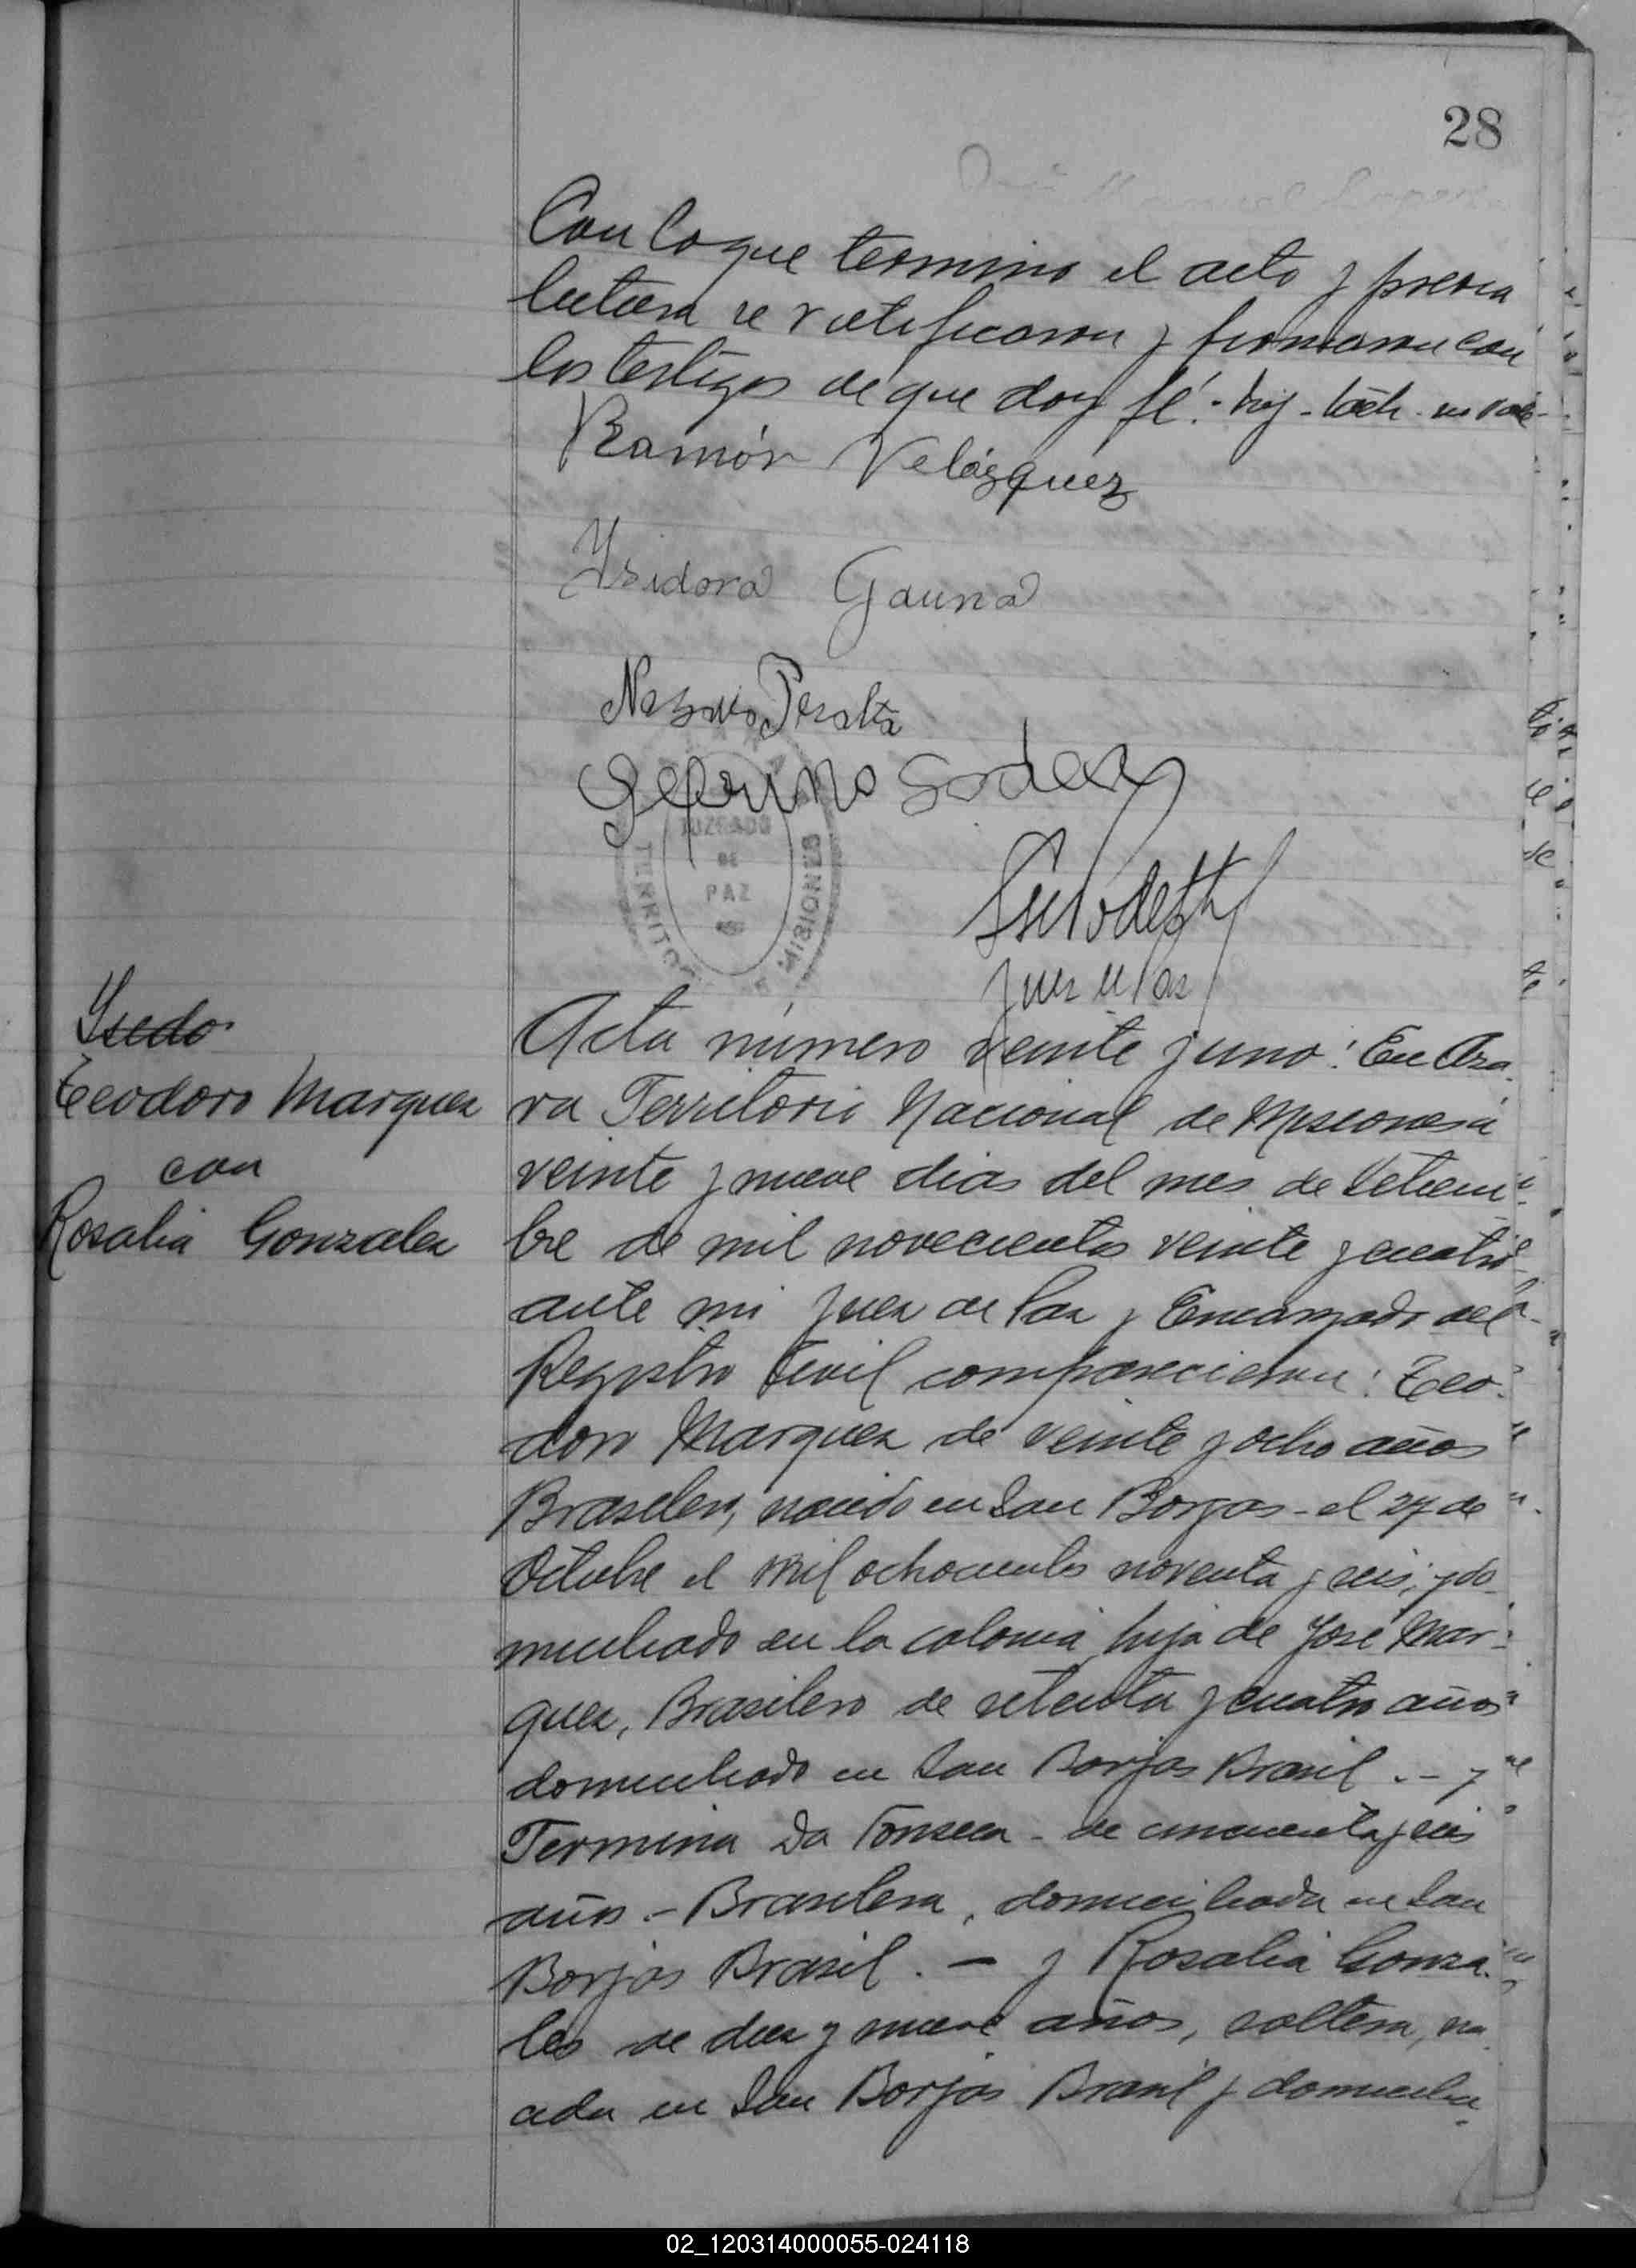 28
Con lo que termino el acto y previa
lectura se ratificaron y firmaron con
los testigos de que doy fé.-
Ramón Velázquez
Ysidora Gauna
Peralta
JUZGADO
DE
PAZ
TERRITO
MISIONES
Juez de Paz
Teodoro Marquez
con
Rosalia Gonzalez
Acta número veinte y uno: En Aza
ra Territorio Nacional de Misiones á
veinte y nueve dias del mes de Setiem
bre de mil novecientos veinte y cuatro
ante mi Juez de Paz y Encargado del
Registro Civil comparecieron: Teo-
doro Marquez de veinte y ocho años
Brasilero, nacido en San Borjas - el 27 de
Octubre de mil ochocientos noventa y seis, y do
miciliado en la colonia, hijo de José Mar-
quez, Brasilero de setenta y cuatro años
domiciliado en San Borjas Brasil .- y
Termina Da Fonseca - de cincuenta y seis
años .- Brasilera, domiciliada en San
Borjas Brasil. - y Rosalia Gonza-
les de diez y nueve años, soltera, na
cida en San Borjas Brasil y domicilia
02_120314000055-024118